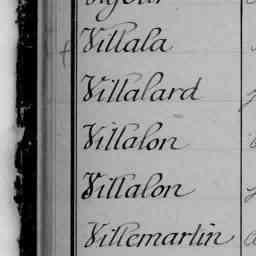 Villala
Villalard
Villalon
Villalon
Villemartin